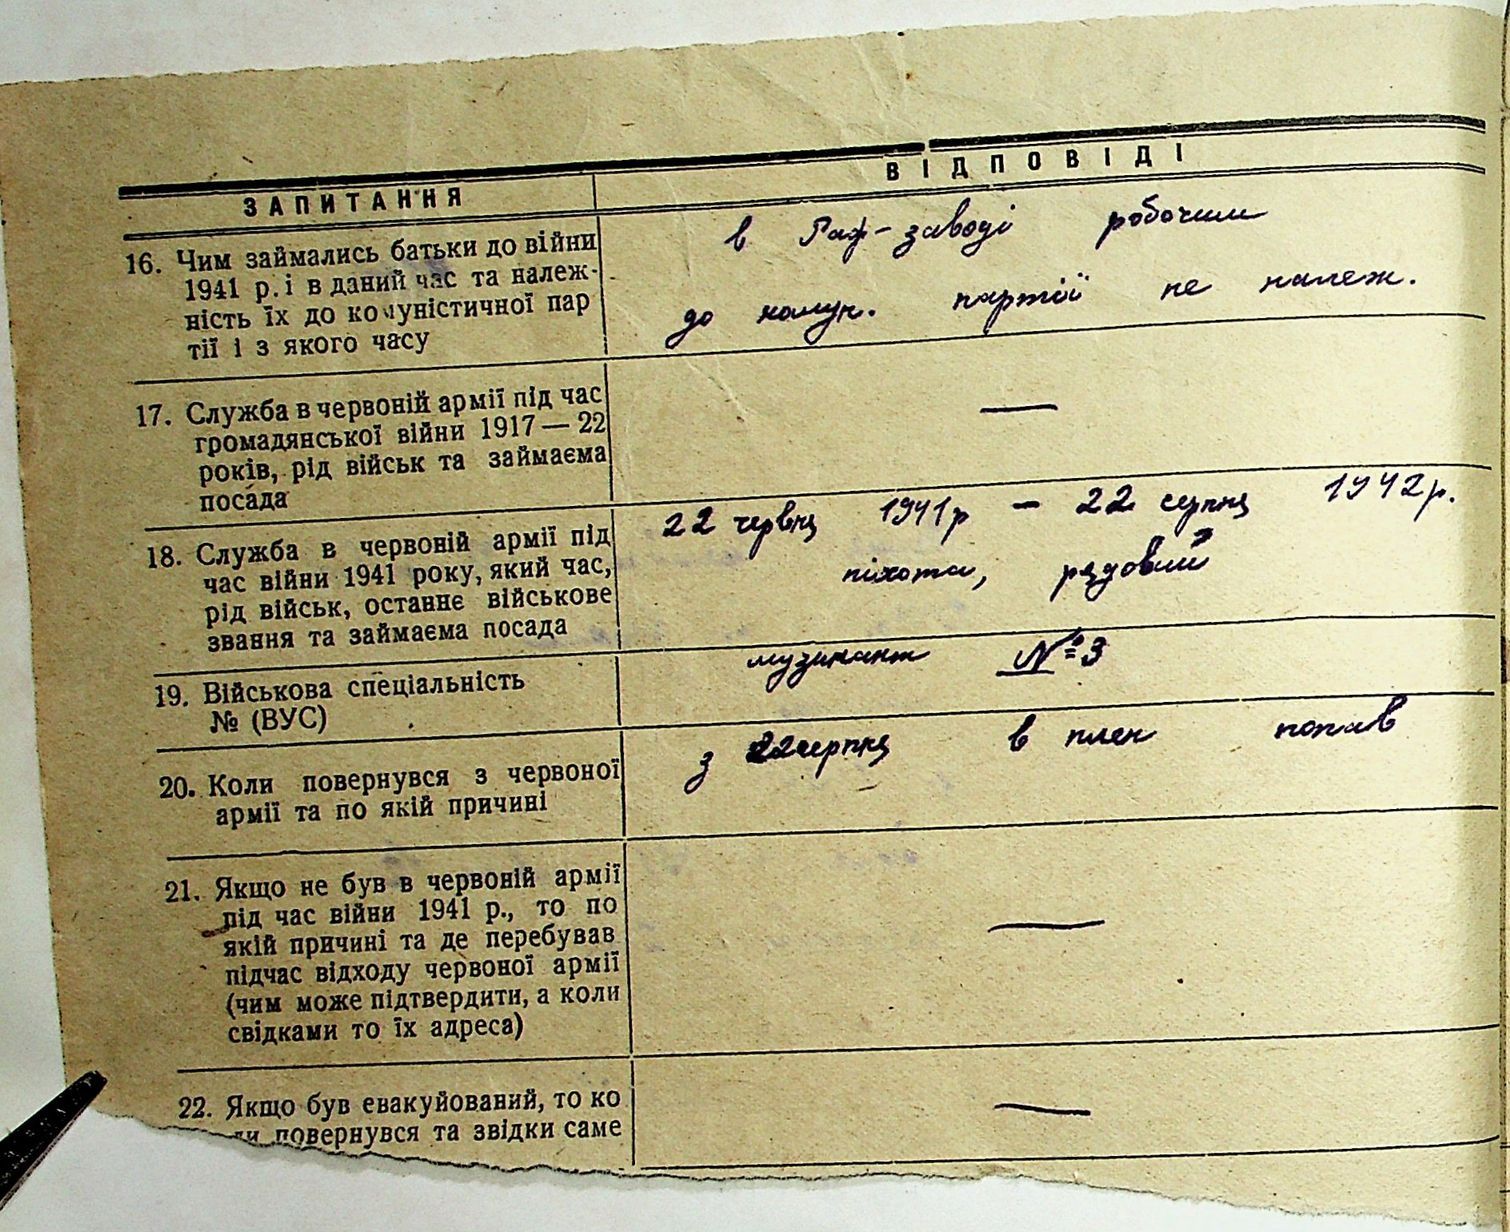 ЗАПИТАННЯ
ВІДПОВІДІ
16. Чим займались батьки до війни
1941 р. і в даний час та належ-
ність їх до комуністичної пар
тії і з якого часу
в Раф-заводі робочим
до комун. партії не належ.
17. Служба в червоній армії під час
громадянської війни 1917 — 22
років, рід військ та займаєма
посада
—
18. Служба в червоній армії під
час війни 1941 року, який час,
рід військ, останнє військове
звання та займаєма посада
22 червня 1941р — 22 серпня 1942р.
піхота, рядовий
19. Військова спеціальність
№ (ВУС)
музикант №3
20. Коли повернувся з червоної
армії та по якій причині
з 22 серпня в плен попав
21. Якщо не був в червоній армії
під час війни 1941 р., то по
якій причині та де перебував
підчас відходу червоної армії
(чим може підтвердити, а коли
свідками то їх адреса)
—
22. Якщо був евакуйований, то ко
ли повернувся та звідки саме
—